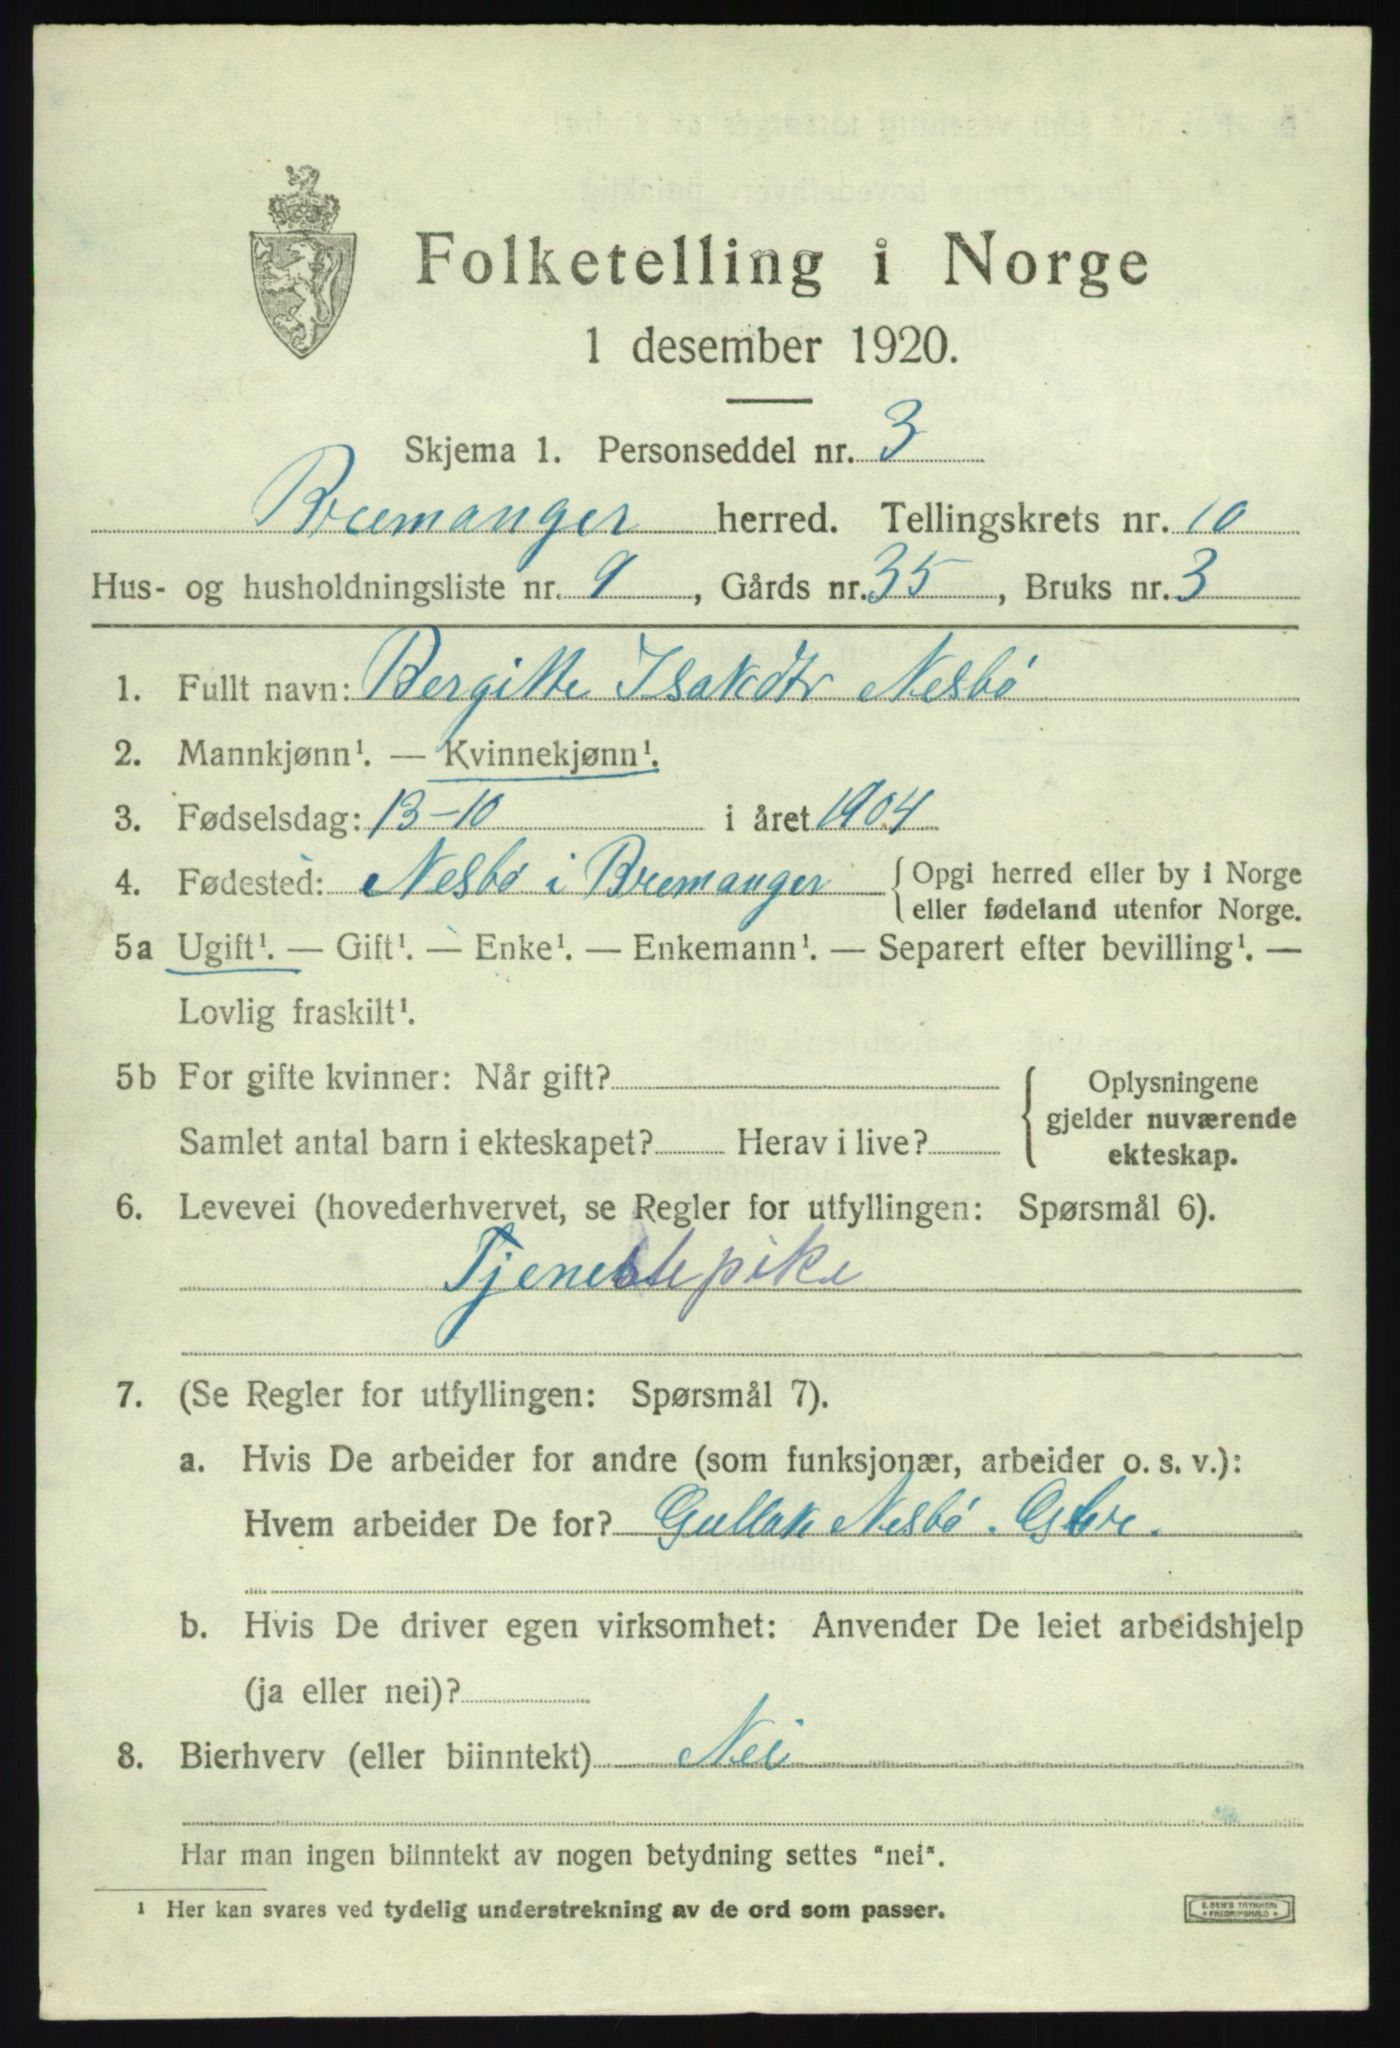 Folketelling i Norge
1 desember 1920.
Skjema 1. Personseddel nr. 3
Bremanger herred. Tellingskrets nr. 10
Hus- og husholdningsliste nr. 9, Gårds nr. 35, Bruks nr. 3
1. Fullt navn: Bergitte Isakdtr Nesbö
2. Mannkjønn¹. — Kvinnekjønn¹.
3. Fødselsdag: 13-10 i året 1904
4. Fødested: Nesbö i Bremanger { Opgi herred eller by i Norge
eller fødeland utenfor Norge.
5a Ugift¹. — Gift¹. — Enke¹. — Enkemann¹. — Separert efter bevilling¹. —
Lovlig fraskilt¹.
5b For gifte kvinner: Når gift? { Oplysningene
gjelder nuværende
Samlet antal barn i ekteskapet? Herav i live?
ekteskap.
6. Levevei (hovederhvervet, se Regler for utfyllingen: Spørsmål 6).
Tjenestepike
7. (Se Regler for utfyllingen: Spørsmål 7).
a. Hvis De arbeider for andre (som funksjonær, arbeider o. s. v.):
Hvem arbeider De for? Gullak Nesbö.
b. Hvis De driver egen virksomhet: Anvender De leiet arbeidshjelp
(ja eller nei)?
8. Bierhverv (eller biinntekt) Nei
Har man ingen biinntekt av nogen betydning settes "nei".
¹ Her kan svares ved tydelig understrekning av de ord som passer.